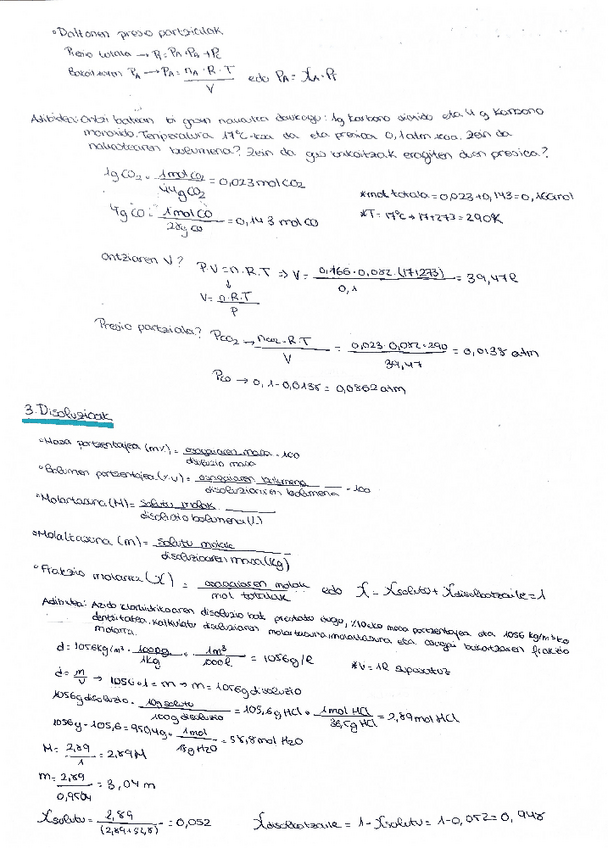 • Daltonen presio partzialak
Presio totala → Pt = PA + PB + PC
Bakoitzaren PA → PA = nA · R · T / V edo PA = XA · Pt
Adibidea: Ontzi batean bi gasen nahastea daukagu: 1g karbono dioxido eta 4 g karbono
monoxido. Tenperatura 17°C-koa da eta presioa 0,1 atm-koa. Zein da
nahastearen bolumena? Zein da gas bakoitzak eragiten duen presioa?
1g CO2 · 1 mol CO2 / 44g CO2 = 0,023 mol CO2
* mol totala = 0,023 + 0,143 = 0,166 mol
4g CO · 1 mol CO / 28g CO = 0,143 mol CO
* T = 17°C → 17+273 = 290K
Ontziaren V? P·V = n·R·T ⇒ V = 0,166 · 0,082 · (17+273) / 0,1 = 39,47 l
↓
V = n·R·T / P
Presio partziala? PCO2 → nCO2 · R · T / V = 0,023 · 0,082 · 290 / 39,47 = 0,0138 atm
PCO → 0,1 - 0,0138 = 0,0862 atm
3. Disoluzioak
• Masa portzentajea (m%) = osagaiaren masa / disoluzio masa · 100
• Bolumen portzentajea (%v) = osagaiaren bolumena / disoluzioaren bolumena · 100
• Molartasuna (M) = solutu molak / disoluzio bolumena (L)
• Molaltasuna (m) = solutu molak / disolbatzaren masa (kg)
• Frakzio molarra (X) = osagaiaren molak / mol totalak edo X = Xsolutu + Xdisolbatzaile = 1
Adibidea: Azido klorhidrikoaren disoluzio bat prestatu dugu, %10eko masa portzentajea eta 1056 kg/m³-ko
dentsitatea. Kalkulatu disoluzioaren molartasuna, molaltasuna eta osagai bakoitzaren frakzio
molarra.
d = 1056 kg/m³ · 1000g / 1kg · 1m³ / 1000l = 1056 g/l
* V = 1l suposatuz
d = m / V → 1056 · 1 = m → m = 1056g disoluzio
1056g disoluzio · 10g solutu / 100g disoluzio = 105,6g HCl · 1 mol HCl / 36,5g HCl = 2,89 mol HCl
1056g - 105,6 = 950,4g · 1 mol / 18g H2O = 52,8 mol H2O
M = 2,89 / 1 = 2,89 M
m = 2,89 / 0,9504 = 3,04 m
Xsolutu = 2,89 / (2,89+52,8) = 0,052
Xdisolbatzaile = 1 - Xsolutu = 1 - 0,052 = 0,948